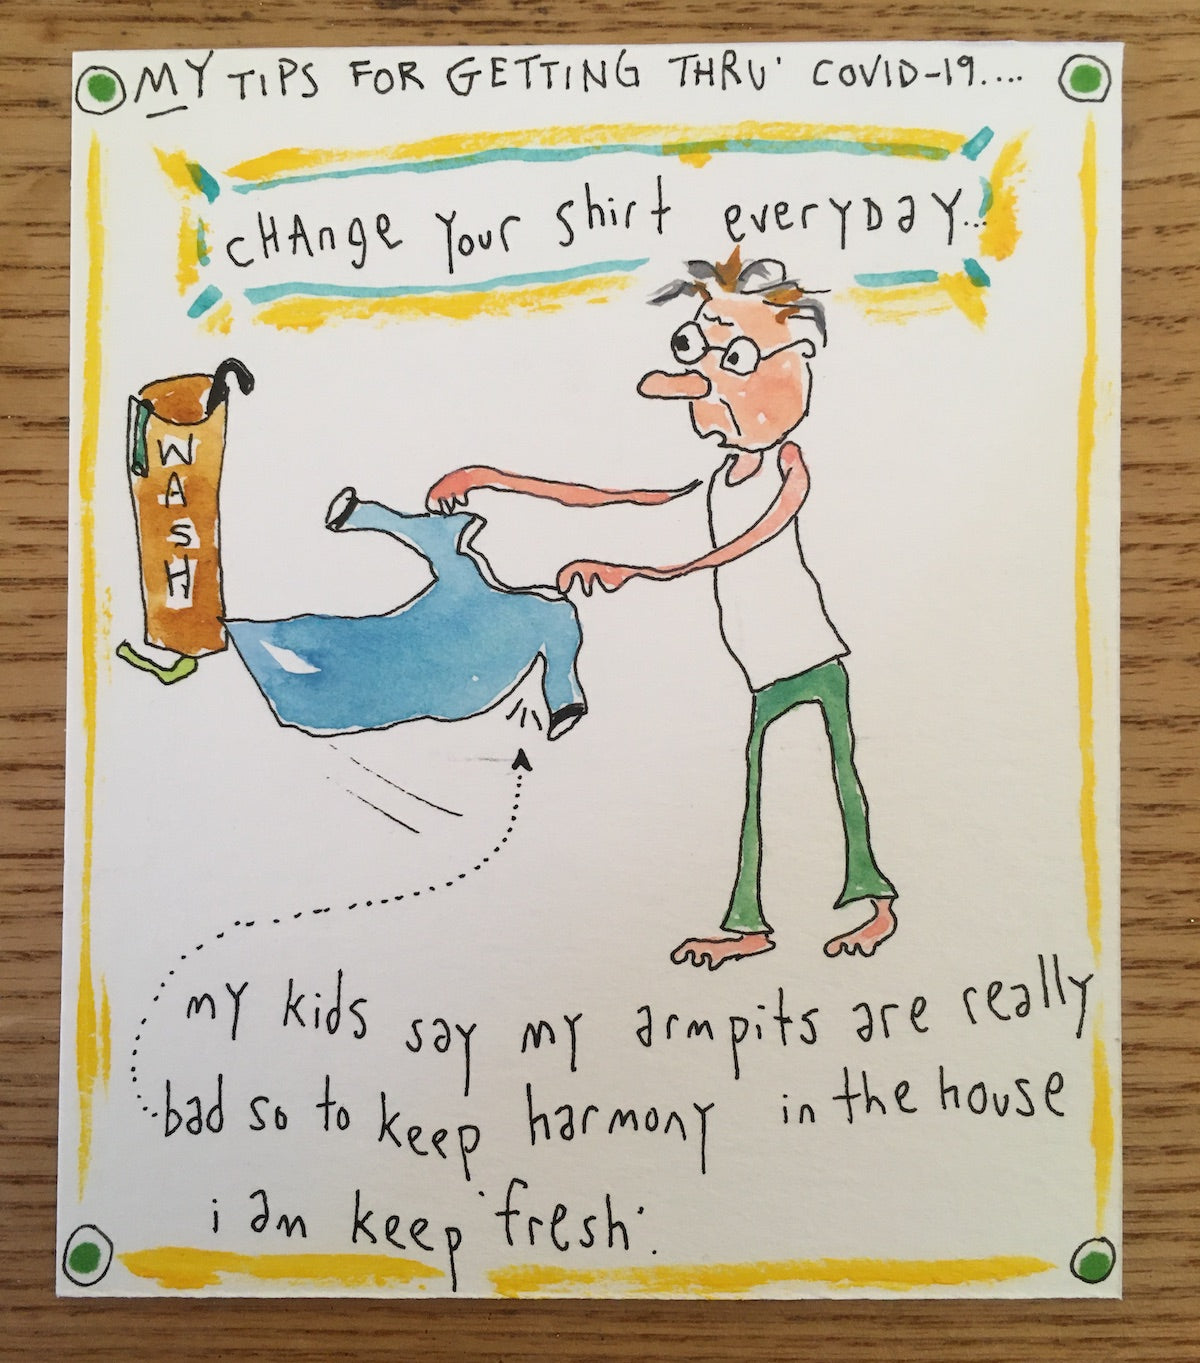 MY TIPS FOR GETTING THRU' COVID-19....
cHAnge your shirt everyDay...
WASH
my kids say my armpits are really
bad so to keep harmony in the house
i am keep 'fresh'.